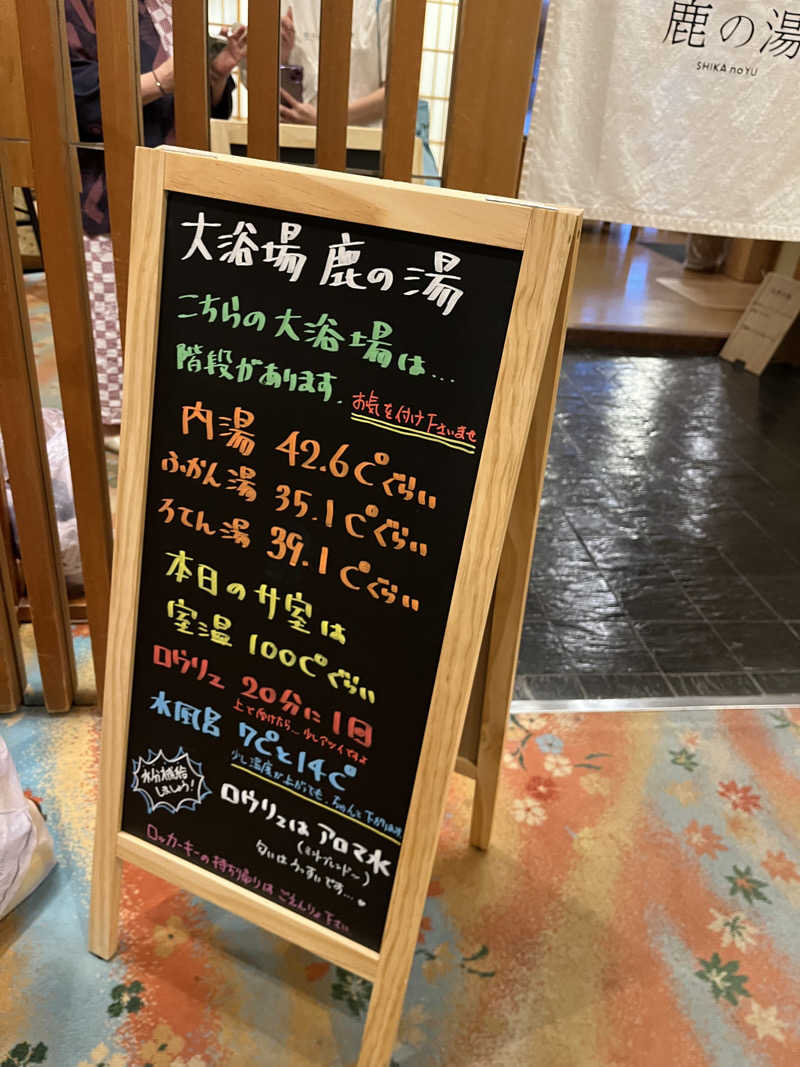 鹿の湯
SHIKA noYU
大浴場 鹿の湯
こちらの大浴場は…
階段があります。
お気を付け下さいませ
内湯 42.6C°ぐらい
ふかん湯 35.1C°ぐらい
ろてん湯 39.1C°ぐらい
本日のサ室は
室温 100C°ぐらい
ロウリュ 20分に1回
上で受けたら…少しアツイですよ
水風呂 7C°と14C°
少し温度が上がっても、ちゃんと下がります
水分補給
しましょう!
ロウリュは アロマ水
(ミントブレンド〜)
匂いはうっすいです…♥
ロッカーキーの持ち帰りは ごえんりょ下さい